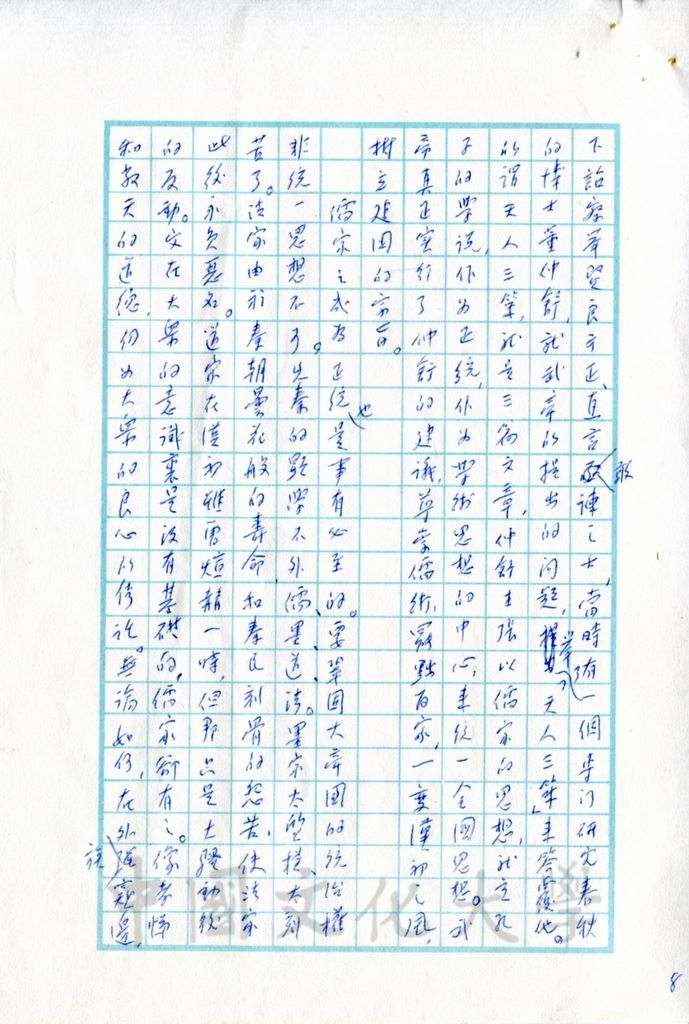 下詔察舉賢良方正、直言敢諫之士，當時有一個專门研究春秋
的博士董仲舒，就武帝的提出的问題，舉了「天人三策」來答覆他。
所謂天人三策，就是三篇文章，仲舒主張以儒家的思想，就是孔
子的學說，作为正統，作为學術思想的中心，來統一全國思想。武
帝真正实行了仲舒的建議，尊崇儒術，罷黜百家，一變漢初之風，
樹立建国的宗旨。
儒家之成为正統，也是事有必至的。要鞏固大帝國的統治權
非統一思想不可。先秦的顯學不外儒、墨、道、法。墨家太笁模、太刻
苦了。法家由於秦朝曇花般的壽命和秦民刻骨的怨苦，使法家
此後永负惡名。道家在漢初雖曾煊赫一時，但那只是大騷動後
的反動。它在大衆的意識裏是没有基礎的，儒家卻有之。像孝悌
和教天的道德，仍为大衆的良心所倚託。無論如何，在外強裏邊，
說
中國文化大學
8